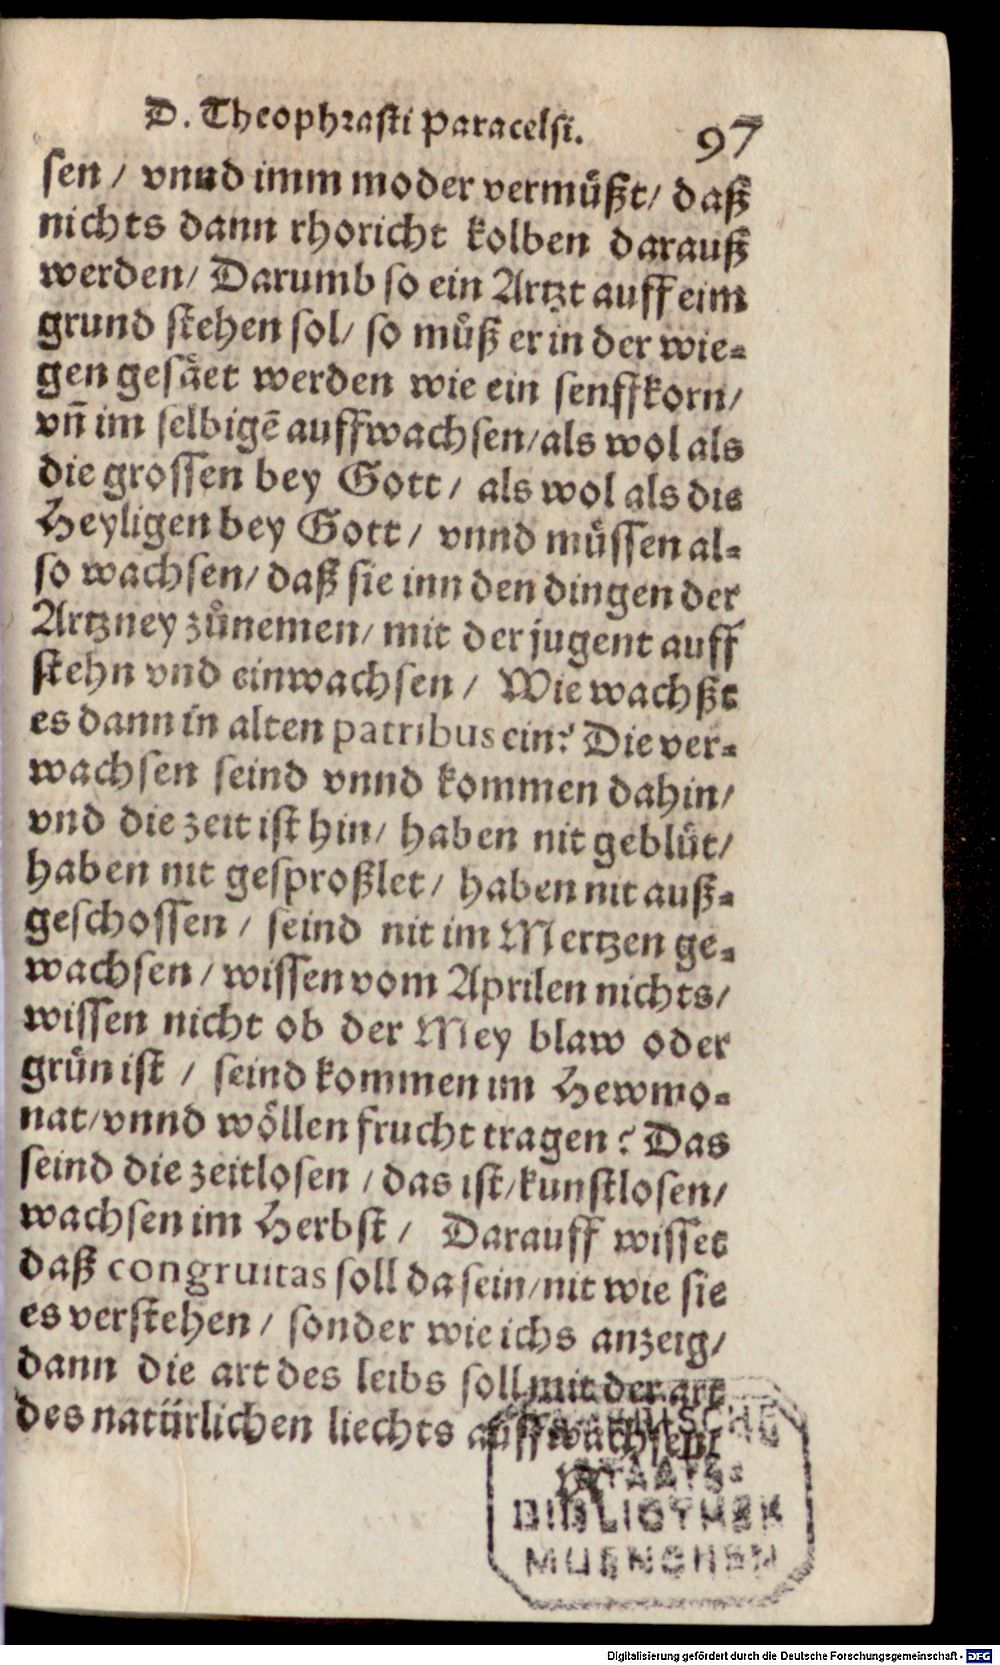 D. Theophrasti Paracelsi. 97
sen / vnnd imm moder vermüßt / daß
nichts dann rhoricht kolben darauß
werden / Darumb so ein Artzt auff eim
grund stehen sol / so müß er in der wie-
gen gesäet werden wie ein senffkorn /
vn̄ im selbigē auffwachsen / als wol als
die grossen bey Gott / als wol als die
Heyligen bey Gott / vnnd müssen al-
so wachsen / daß sie inn den dingen der
Artzney zůnemen / mit der jugent auff
stehn vnd einwachsen / Wie wachßt
es dann in alten patribus ein? Die ver-
wachsen seind vnnd kommen dahin /
vnd die zeit ist hin / haben nit geblüt /
haben nit gesproßlet / haben nit auß-
geschossen / seind nit im Mertzen ge-
wachsen / wissen vom Aprilen nichts /
wissen nicht ob der Mey blaw oder
grün ist / seind kommen im Hewmo-
nat / vnnd wöllen frucht tragen? Das
seind die zeitlosen / das ist / kunstlosen /
wachsen im Herbst / Darauff wisset
daß congruitas soll da sein / nit wie sie
es verstehen / sonder wie ichs anzeig /
dann die art des leibs soll mit der art
des natürlichen liechts auffwachsen /
STAATS-
BIBLIOTHEK
MUENCHEN
Digitalisierung gefördert durch die Deutsche Forschungsgemeinschaft - DFG